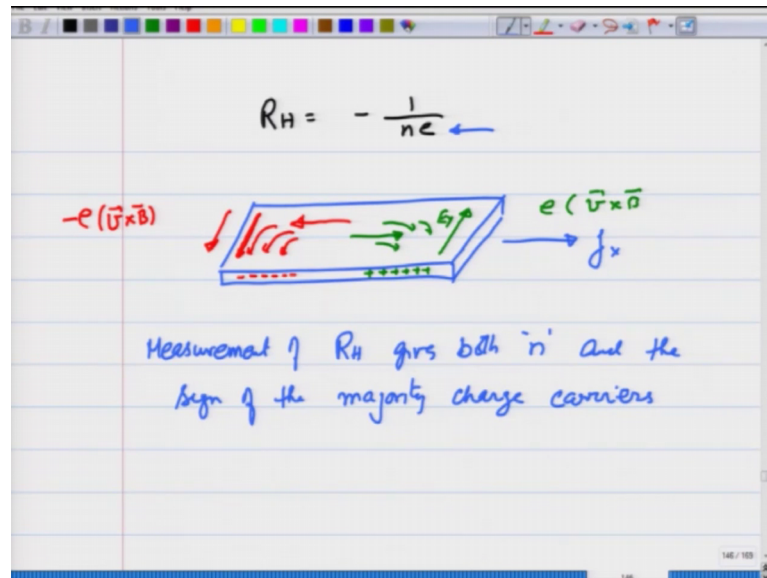 R_H = - 1/ne
-e(v̄×B̄)
e(v̄×B
Ey
jx
Measurement of RH gives both 'n' and the
sign of the majority charge carriers
146 / 169